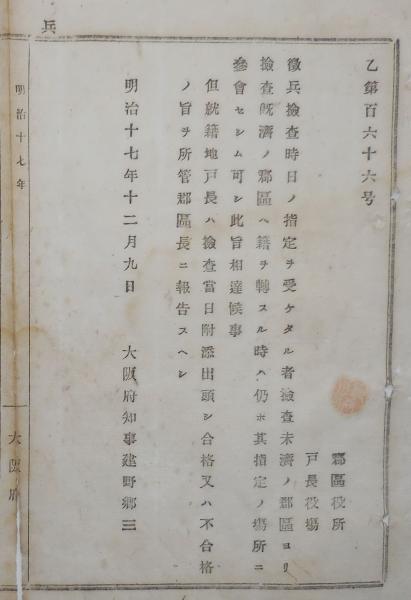 兵
乙第百六十六号
郡區役所
戸長役場
徴兵檢査時日ノ指定ヲ受ケタル者檢査未濟ノ郡區ヨリ
檢査既濟ノ郡區ヘ籍ヲ轉スル時ハ仍ホ其指定ノ場所ニ
參會セシム可シ此旨相達候事
但就籍地戸長ハ檢査當日附添出頭シ合格又ハ不合格
ノ旨ヲ所管郡區長ニ報告スヘシ
明治十七年十二月九日　大阪府知事建野郷三
明治十七年
大阪府